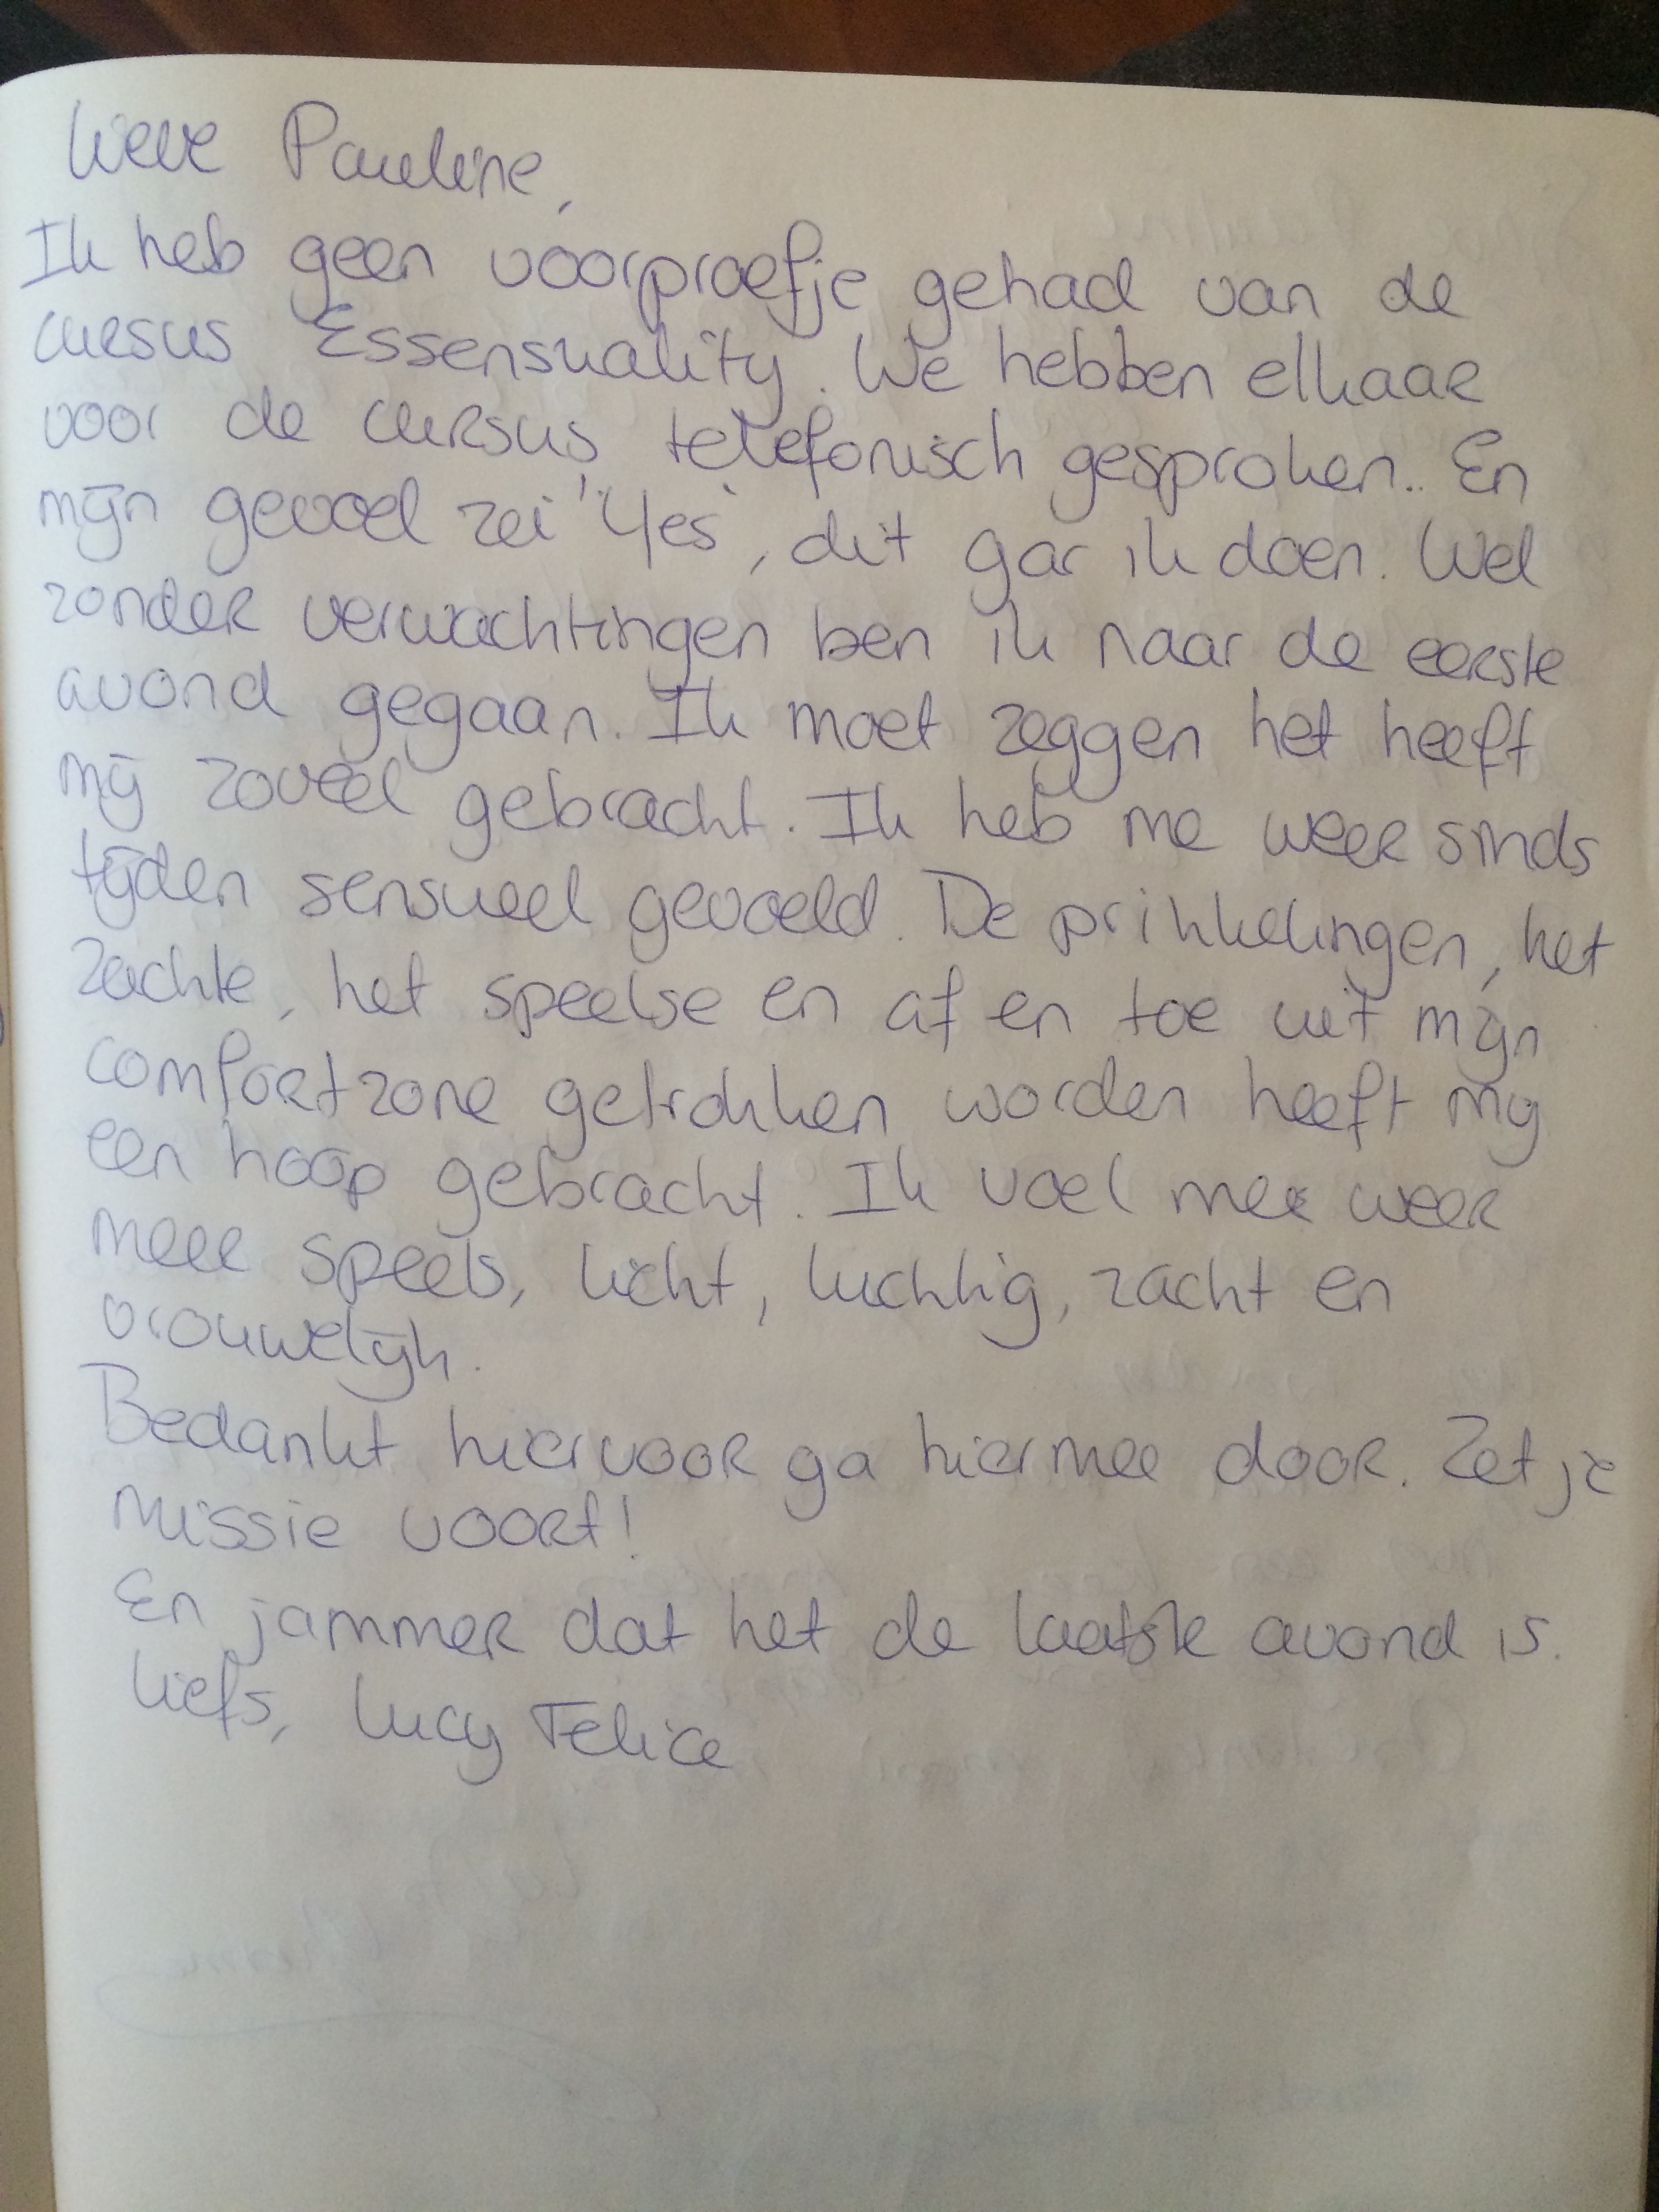 Lieve Pauline,
Ik heb geen voorproefje gehad van de
cursus Essensuality. We hebben elkaar
voor de cursus telefonisch gesproken.. En
mijn gevoel zei "Yes", dit gar ik doen. Wel
zonder verwachtingen ben ik naar de eerste
avond gegaan. Ik moet zeggen het heeft
mij zoveel gebracht. Ik heb me weer sinds
tijden sensueel gevoeld. De prikkelingen, het
zachte, het speelse en af en toe uit mijn
comfortzone getrokken worden heeft mij
een hoop gebracht. Ik voel mee weer
meer speels, licht, luchtig, zacht en
vrouwelijk.
Bedankt hiervoor ga hiermee door. Zet je
missie voort!
En jammer dat het de laatste avond is.
Liefs, Lucy Felice